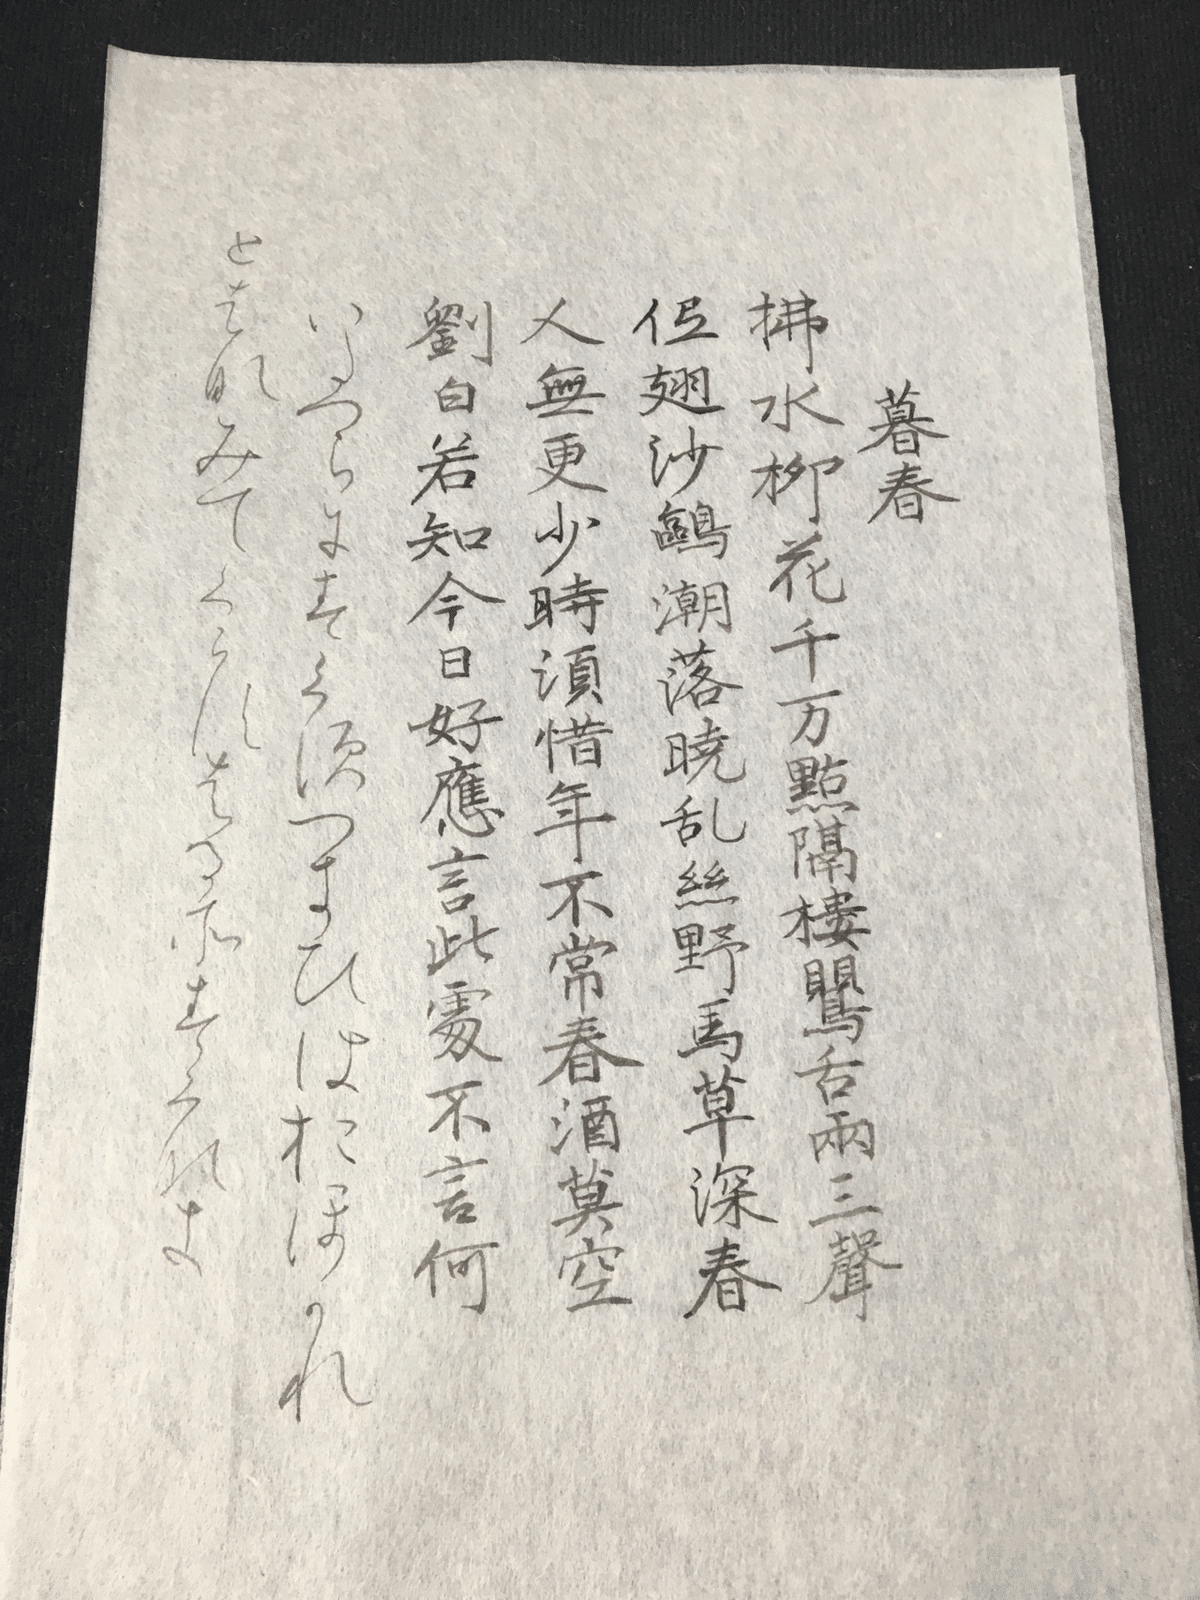 暮春
拂水柳花千万點隔樓鸎舌兩三聲
低翅沙鷗潮落暁乱絲野馬草深春
人無更少時須惜年不常春酒莫空
劉白若知今日好應言此處不言何
いたつらにすくすつきひはおほかれ
とはなみてくらすはるそすくなき